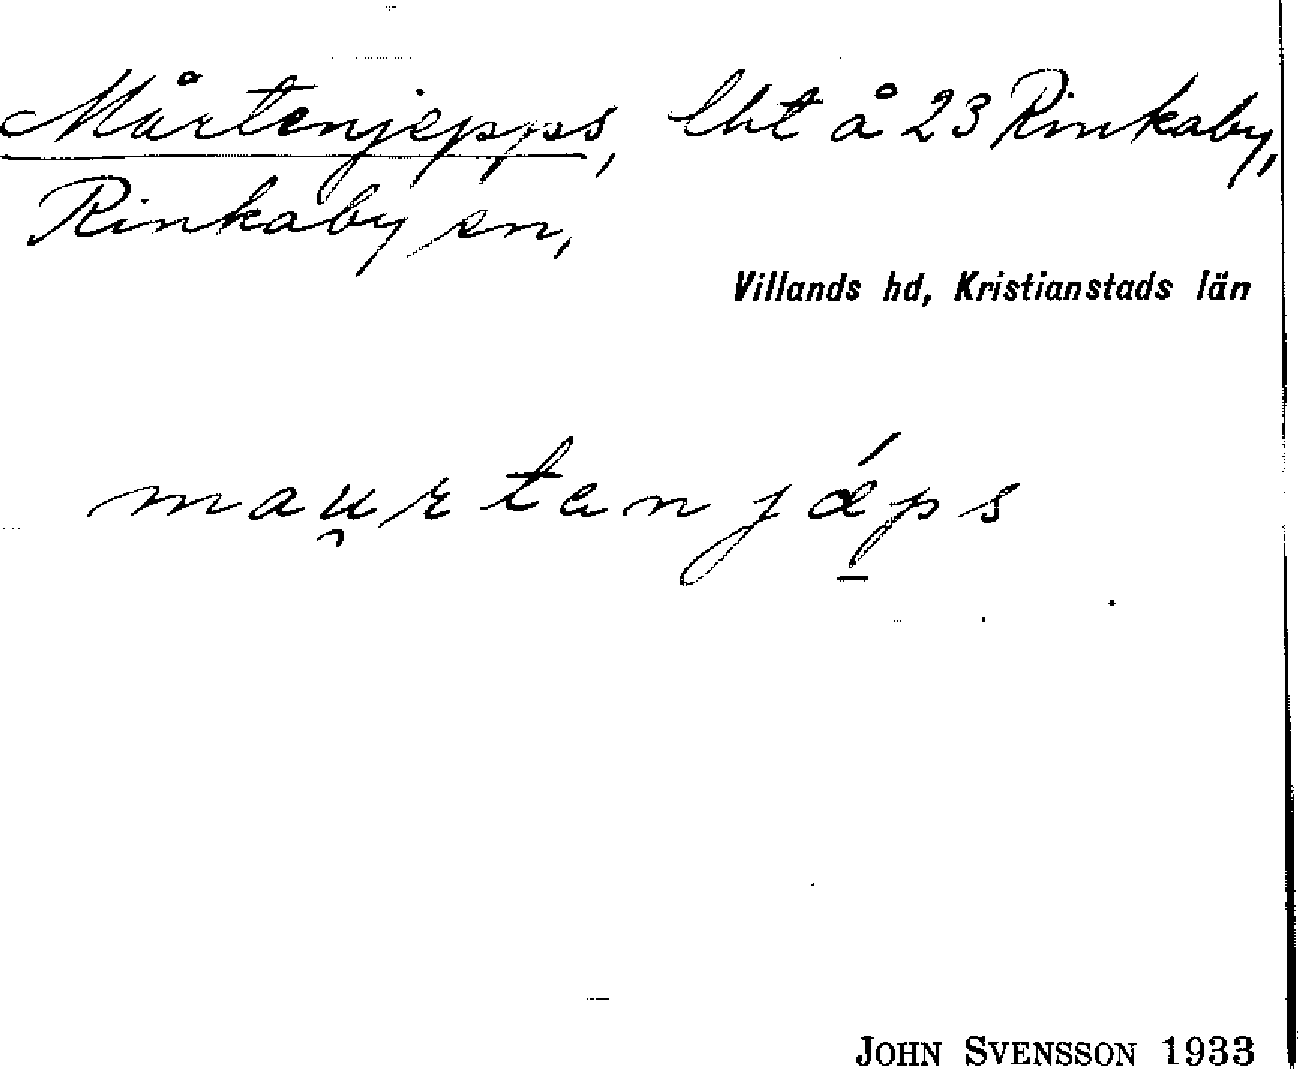 Mårtenjepps, lht å 23 Rinkaby,
Rinkaby sn,
Villands hd, Kristianstads län
mau̯rtanjǽp̠s
JOHN SVENSSON 1933